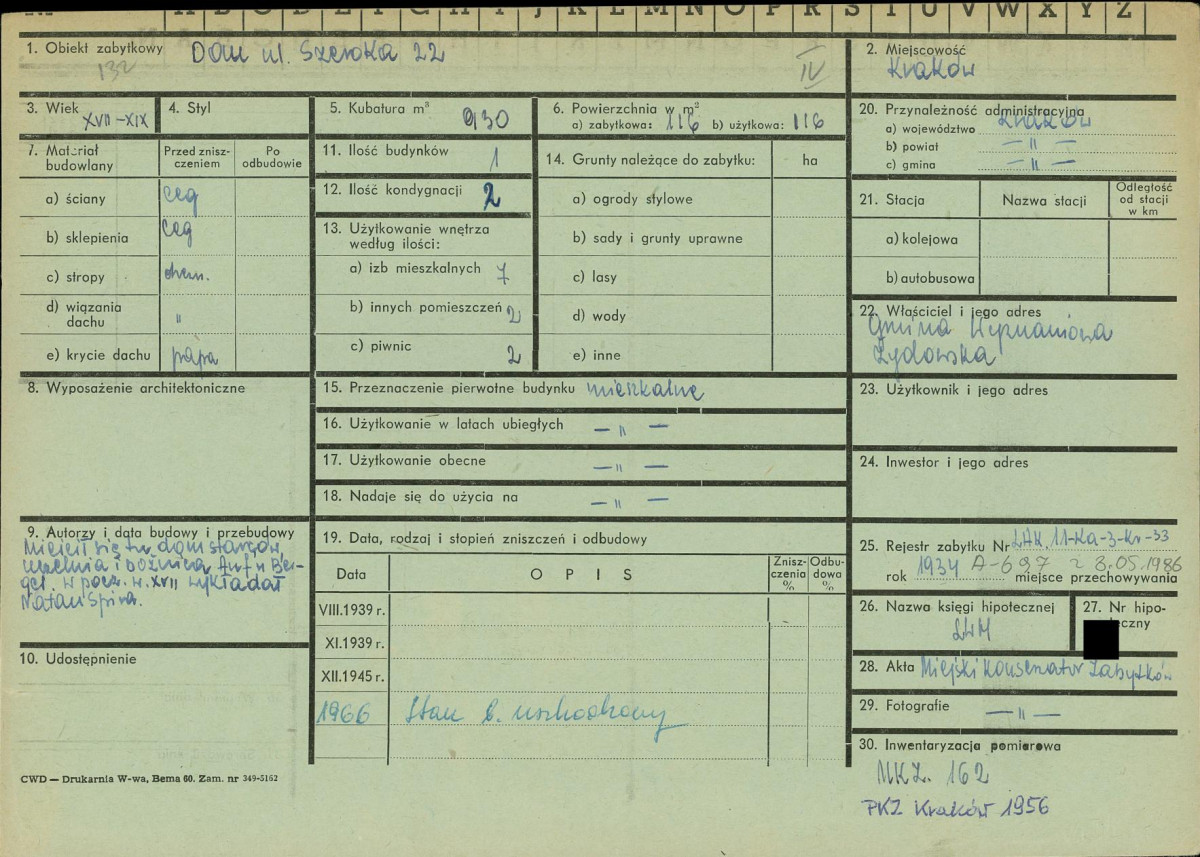 A B C D E F G H I J K L M N O P R S T U V W X Y Z
1. Obiekt zabytkowy Dom ul. Szeroka 22
132
IV
2. Miejscowość
Kraków
3. Wiek XVII-XIX
4. Styl
5. Kubatura m³ 930
6. Powierzchnia w m²
a) zabytkowa: 116 b) użytkowa: 116
20. Przynależność administracyjna
a) województwo Kraków
b) powiat — " —
c) gmina — " —
7. Materiał budowlany
Przed zniszczeniem
Po odbudowie
a) ściany ceg
b) sklepienia ceg
c) stropy drewn.
d) wiązania dachu "
e) krycie dachu papa
11. Ilość budynków 1
12. Ilość kondygnacji 2
13. Użytkowanie wnętrza
według ilości:
a) izb mieszkalnych 7
b) innych pomieszczeń 2
c) piwnic 2
14. Grunty należące do zabytku: ha
a) ogrody stylowe
b) sady i grunty uprawne
c) lasy
d) wody
e) inne
21. Stacja Nazwa stacji
Odległość
od stacji
w km
a) kolejowa
b) autobusowa
22. Właściciel i jego adres
Gmina Wyznaniowa
Żydowska
8. Wyposażenie architektoniczne
15. Przeznaczenie pierwotne budynku mieszkalne
16. Użytkowanie w latach ubiegłych — " —
17. Użytkowanie obecne — " —
18. Nadaje się do użycia na — " —
23. Użytkownik i jego adres
24. Inwestor i jego adres
9. Autorzy i data budowy i przebudowy
Mieścił się tu dom starców,
uczelnia i bóżnica
w pocz. w. XVII wykładał
Natan Spira.
10. Udostępnienie
19. Data, rodzaj i stopień zniszczeń i odbudowy
Data
OPIS
Zniszczenia %
Odbudowa %
VIII.1939 r.
XI.1939 r.
XII.1945 r.
1966 Stan b. uszkodzony
25. Rejestr zabytku Nr LAK. 11-Ka-3-Kr-33
rok 1934 A-697 z 3.05.1986
miejsce przechowywania
26. Nazwa księgi hipotecznej
27. Nr hipo-
eczny
28. Akta Miejski Konserwator Zabytków
29. Fotografie — " —
30. Inwentaryzacja pomiarowa
MKZ. 162
PKZ Kraków 1956
CWD — Drukarnia W-wa, Bema 60. Zam. nr 349-5162